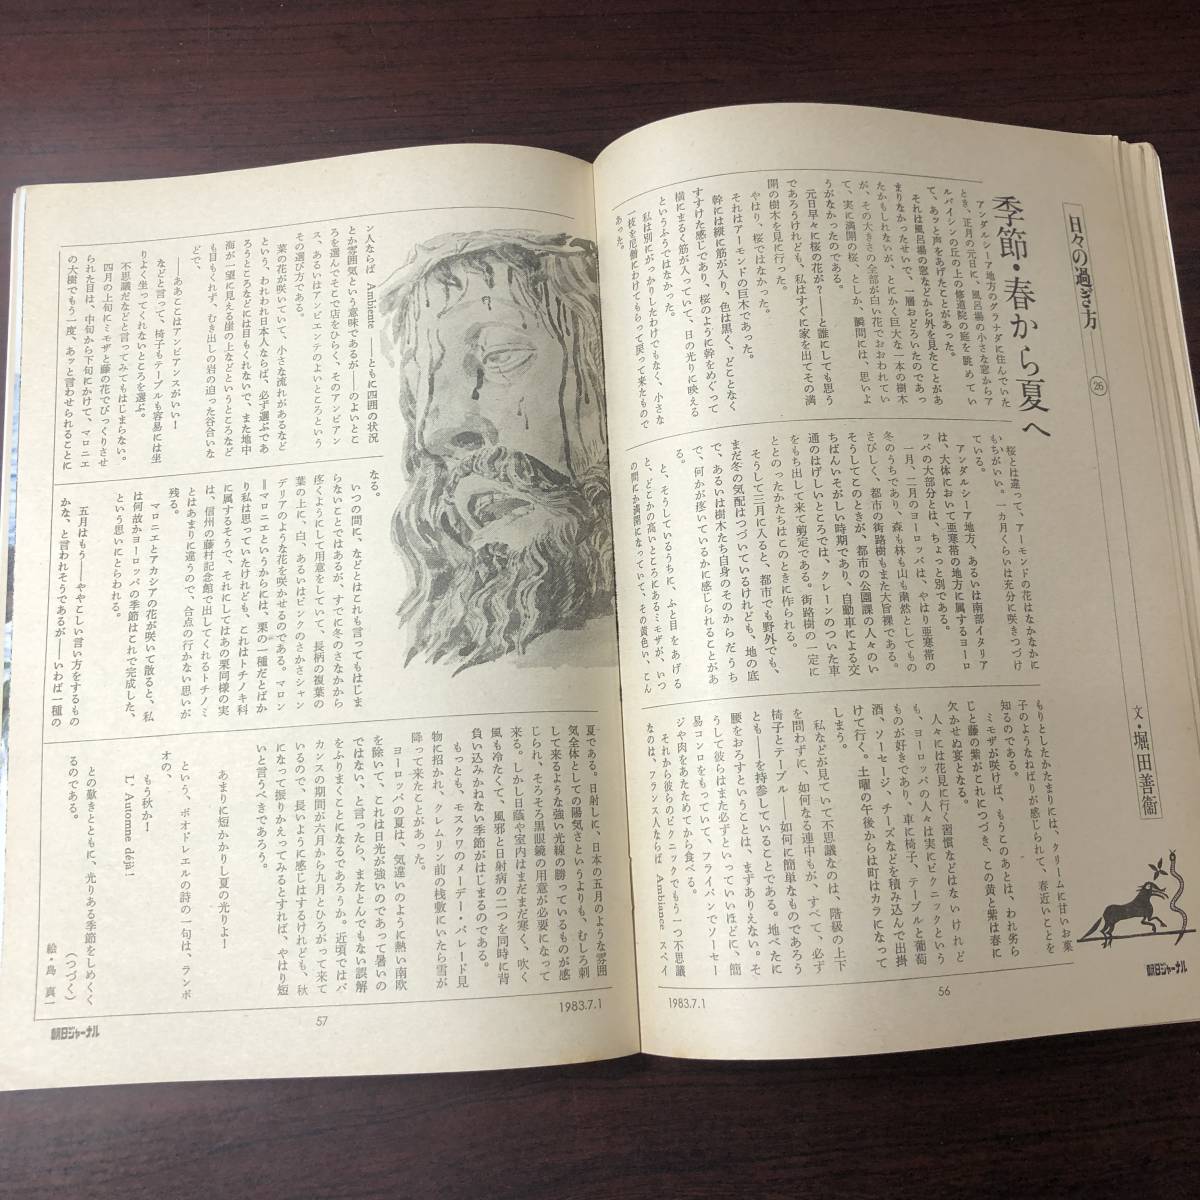 日々の過ぎ方
26
季節・春から夏へ
文・堀田善衞
アンダルシーア地方のグラナダに住んでいた
とき、正月の元日に、風呂場の小さな窓からア
ルバイシンの丘の上の修道院の庭を眺めてい
て、あッと声をあげたことがあった。
それは風呂場の窓などから外を見たことがあ
まりなかったせいで、一層おどろいたのであっ
たかもしれないが、とにかく巨大な一本の樹木
が、その大きさの全部が白い花でおおわれてい
て、実に満開の桜、としか、瞬間には、思いよ
うがなかったのである。
元日早々に桜の花が?――と誰にしても思う
であろうけれども、私はすぐに家を出てその満
開の樹木を見に行った。
やはり、桜ではなかった。
それはアーモンドの巨木であった。
幹には縦に筋が入り、色は黒く、どことなく
すすけた感じであり、桜のように幹をめぐって
横にまるく筋が入っていて、日の光りに映える
というふうではなかった。
私は別にがっかりしたわけでもなく、小さな
一枝を尼僧にわけてもらって戻って来たもので
あった。
桜とは違って、アーモンドの花はなかなかに
もちがいい。一カ月くらいは充分に咲きつづけ
ている。
アンダルシーア地方、あるいは南部イタリア
は、大体において亜寒帯の地方に属するヨーロ
ッパの大部分とは、ちょっと別である。
一月、二月のヨーロッパは、やはり亜寒帯の
冬のうちであり、森も林も山も粛然としてもの
さびしく、都市の街路樹もまた大旨裸である。
そうしてこのときが、都市の公園課の人々のい
ちばんいそがしい時期であり、自動車による交
通のはげしいところでは、クレーンのついた車
をもち出して来て剪定である。街路樹の一定に
ととのったかたちはこのときに作られる。
そうして三月に入ると、都市でも野外でも、
まだ冬の気配はつづいているけれども、地の底
で、あるいは樹木たち自身のそのからだうち
で、何かが疼いているかに感じられることがあ
る。
と、そうしているうちに、ふと目をあげる
と、どこかの高いところにあるミモザが、いつ
の間にか満開になっていて、その黄色い、こん
もりとしたかたまりには、クリームに甘いお菓
子のようなねばりが感じられて、春近いことを
知るのである。
ミモザが咲けば、もうこのあとは、われ劣ら
じと藤の紫がこれにつづき、この黄と紫は春に
欠かせぬ宴となる。
人々には花見に行く習慣などはないけれど
も、ヨーロッパの人々は実にピクニックという
ものが好きであり、車に椅子、テーブルと葡萄
酒、ソーセージ、チーズなどを積み込んで出掛
けて行く。土曜の午後からは町はカラになって
しまう。
私などが見ていて不思議なのは、階級の上下
を問わずに、如何なる連中もが、すべて、必ず
椅子とテーブル――如何に簡単なものであろう
とも――を持参していることである。地べたに
腰をおろすということは、まずありえない。そ
うして彼らはまた必ずといっていいほどに、簡
易コンロをもっていて、フライパンでソーセー
ジや肉をあたためてから食べる。
それから彼らのピクニックでもう一つ不思議
なのは、フランス人ならば Ambiance スペイ
56
1983.7.1
朝日ジャーナル
ン人ならば Ambiente ――ともに四囲の状況
とか雰囲気という意味であるが――のよいとこ
ろを選んでそこで店をひらく、そのアンビアン
ス、あるいはアンビエンテのよいところという
その選び方である。
菜の花が咲いていて、小さな流れがあるなど
という、われわれ日本人ならば、必ず選ぶであ
ろうところなどには目もくれないで、また地中
海が一望に見える崖の上などというところなど
も目もくれず、むき出しの岩の迫った谷合いな
どで、
――ああここはアンビアンスがいい!
などと言って、椅子もテーブルも容易には坐
りよく坐ってくれないところを選ぶ。
不思議だなどと言ってみてもはじまらない。
四月の上旬にミモザと藤の花でびっくりさせ
られた目は、中旬から下旬にかけて、マロニエ
の大樹でもう一度、あッと言わせられることに
なる。
いつの間に、などとはこれも言ってもはじま
らないことではあるが、すでに冬のさなかから
疼くようにして用意をしていて、長柄の複葉の
葉の上に、白、あるいはピンクのさかさシャン
デリアのような花を咲かせるのである。マロン
=マロニエというからには、栗の一種だとばか
り私は思っていたけれども、これはトチノキ科
に属するそうで、それにしてはあの栗同様の実
は、信州の藤村記念館で出してくれるトチノミ
とはあまりに違うので、合点の行かない思いが
残る。
マロニエとアカシアの花が咲いて散ると、私
は何故かヨーロッパの季節はこれで完成した、
という思いにとらわれる。
五月はもう――ややこしい言い方をするもの
かな、と言われそうであるが――いわば一種の
夏である。日射しに、日本の五月のような雰囲
気全体としての陽気さというよりも、むしろ刺
して来るような強い光線の勝っているものが感
じられ、そろそろ黒眼鏡の用意が必要になって
来る。しかし日蔭や室内はまだまだ寒く、吹く
風も冷たくて、風邪と日射病の二つを同時に背
負い込みかねない季節がはじまるのである。
もっとも、モスクワのメーデー・パレード見
物に招かれ、クレムリン前の桟敷にいたら雪が
降って来たことがあった。
ヨーロッパの夏は、気違いのように熱い南欧
を除いて、これは日光が強いのであって暑いの
ではない、と言ったら、またとんでもない誤解
をふりまくことになるであろうか。近頃ではバ
カンスの期間が六月から九月とひろがって来て
いるので、長いように感じはするけれども、秋
になって振りかえってみるとすれば、やはり短
いと言うべきであろう。
あまりに短かかりし夏の光りよ!
という、ボオドレエルの詩の一句は、ランボ
オの、
もう秋か!
L' Automne déjà!
との歎きとともに、光りある季節をしめくく
るのである。
(つづく)
絵・島 真一
57
1983.7.1
朝日ジャーナル